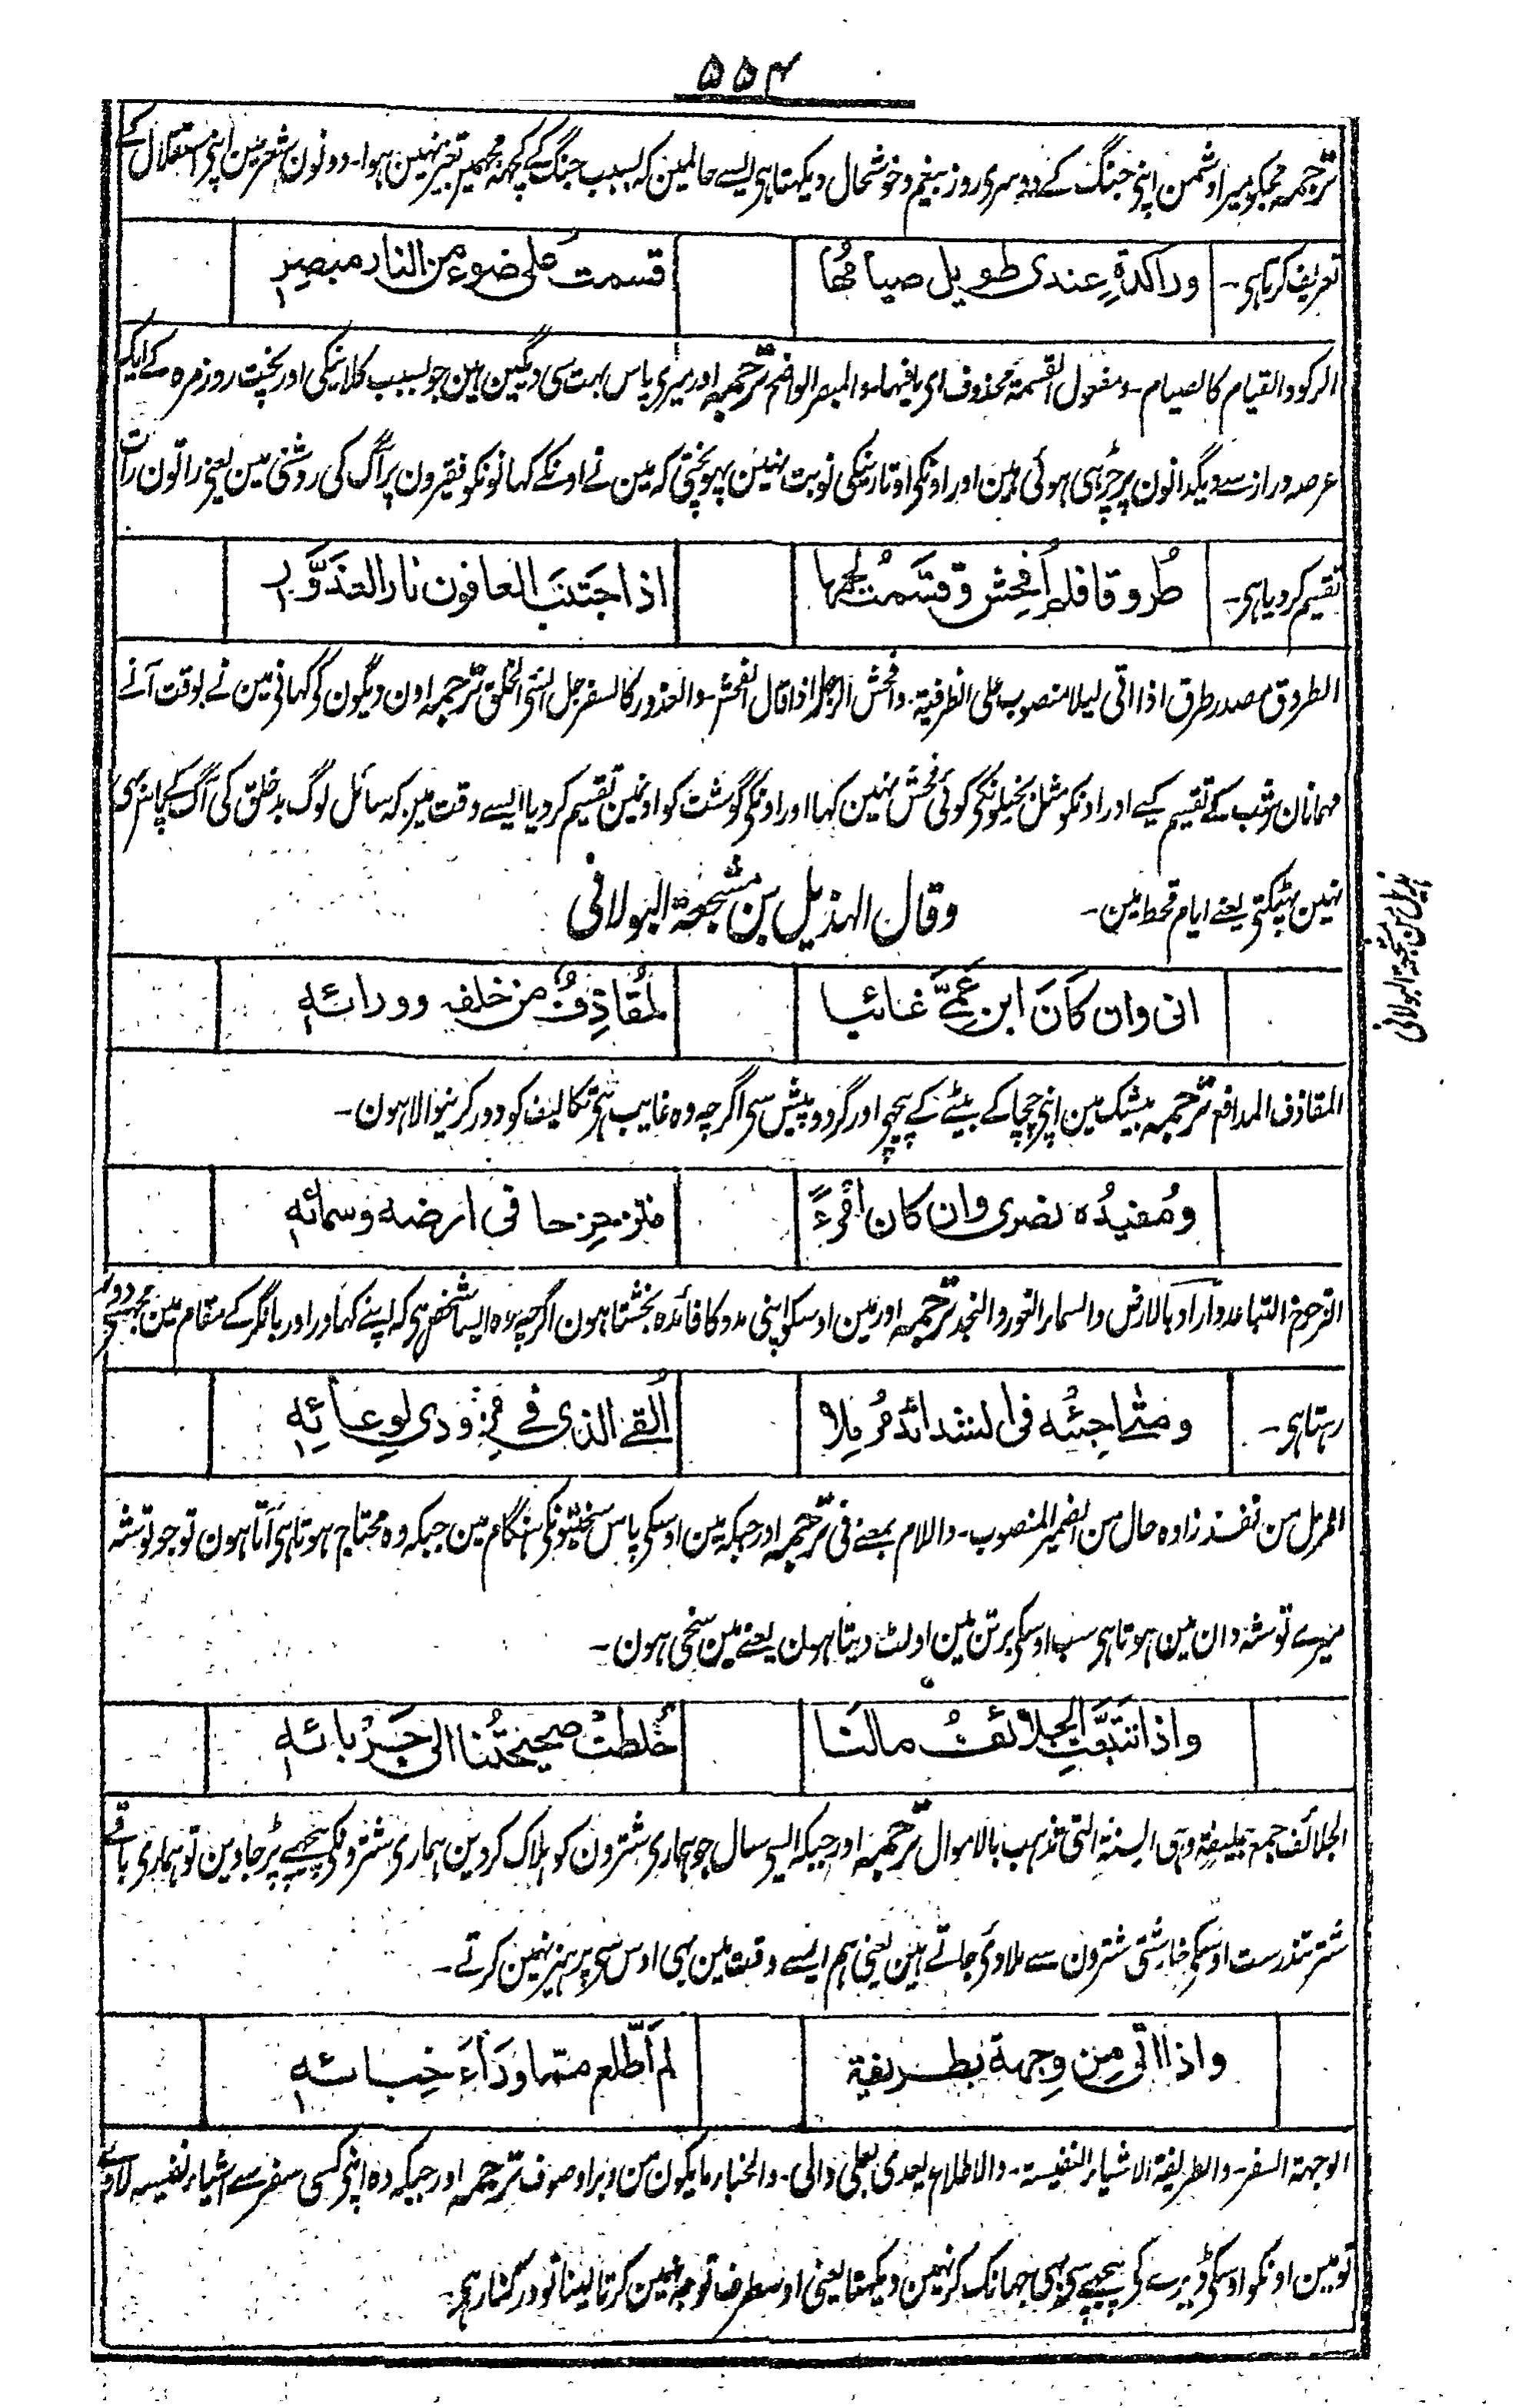 ۵۵۴
ترجمہ مجکو میرا دشمن اپنی جنگ کے دوسری روز بیغم وخوشحال دیکہتا ہی ایسے حالمین کہ بسبب جنگ کے کچہہ مجہمین تغیر نہین ہوا۔ دونون شعر مین اپنی استقلال کے
تعریف کرتا ہی۔ وراكدةٍ عندى طويل صيامُها قسمت على ضوء من النار مبصرِ
الرکود القیام کالصیام۔ ومفعول القسمۃ محذوف ای مافیہا۔ والمبصر الواضح ترجمہ اور میری پاس بہت سی دیگین ہین جو بسبب کلانیکی اور پخت روزمرہ کے ایک
عرصہ دراز سے دیگدانون پر چڑہی ہوئی ہین اور اونکی اوتارنیکی نوبت نہین پہونچتی کہ مین نے اونکے کہانونکو فقیرون پر آگ کی روشنی مین یعنی راتون رات
تقسیم کردیا ہی۔ طُروقا فلم اُفحِش وقسَّمتُ لحمها اذا اجتَنَبَ العافون نار العَذَوَّرِ
الطروق مصدر طرق اذا اتی لیلا منصوب علی الظرفیۃ۔ وافحش الرجل اذا قال الفحش۔ والعذور کالسفرجل السئ الخلق ترجمہ اون دیگون کی کہانی مین نے بوقت آنے
مہمانان شب کے تقسیم کیے اور اونکو مثل بخیلونکی کوئی فحش نہین کہا اور اونکی گوشت کو اونمین تقسیم کردیا ایسے وقت مین کہ سائل لوگ بدخلق کی آگ کے پاس بہی
نہین پہٹکتی یعنے ایام قحط مین۔ وقال الہذیل بن مشجعۃ البولانی
ہذیل بن مشجعۃ البولانی
انى وان كَانَ ابن عَمِّى غائبا لمُقاذِفٌ من خلفه وورائهِ
المقاذف المدافع ترجمہ بیشک مین اپنی چچا کے بیٹے کے پیچہی اور گرد و پیش سی اگرچہ وہ غایب ہی تکالیف کو دور کرنیوالا ہون۔
ومُفيدُه نصرى وان كان امْرءً متزحزحا فى ارضه وسمائهِ
التزحزح التباعد واراد بالارض والسماء الغور والنجد ترجمہ اور مین اوسکو اپنی مدد کا فائدہ بخشتا ہون اگرچہ وہ ایسا شخص ہی کہ اپنے کہاور اور بانگر کے مقام مین مجہسی دور
رہتا ہی۔ ومتى اجِئْه فى الشدائد مُرمِلا اُلقى الذى فى مِزودى لوعائهِ
المرمل من نفد زادہ حال من الضمیر المنصوب۔ واللام بمعنے فی ترجمہ اور جبکہ مین اوسکی پاس سختیونکی ہنگام مین جبکہ وہ محتاج ہوتا ہی آتا ہون تو جو توشہ
میرے توشہ دان مین ہوتا ہی سب اوسکی برتن مین اولٹ دیتا ہون یعنے مین سخی ہون۔
واذا تتبَّعتِ الجلائفُ مالَنَا خُلطتْ صحيحتُنا الى جَرْبائهِ
الجلائف جمع جلیفۃ وہی السنۃ التی تذہب بالاموال ترجمہ اور جبکہ ایسی سال جو ہماری شترون کو ہلاک کردین ہماری شترونکی پیچہے پڑ جاوین تو ہماری باقے
شتر تندرست اوسکی خارشتی شترون سے ملادئی جاتے ہین یعنی ہم ایسے وقت مین بہی اوس سی پرہیز نہین کرتے۔
واذا اتى مِن وجهة بطريفة لم اَطَّلع ممّا وَرَاءَ خِبائهِ
الوجہۃ السفر۔ والطریفۃ الاشیاء النفیسۃ۔ والاطلاع یعدی بعلی والی۔ والخباء ما یکون من وبر او صوف ترجمہ اور جبکہ وہ اپنی کسی سفر سے اشیاء نفیسہ لاوے
تو مین اونکو اوسکی ڈیرے کی پیچہے سی بہی جہانک کر نہین دیکہتا یعنی اوسطرف توجہ نہین کرتا لینا تو درکنار ہی۔